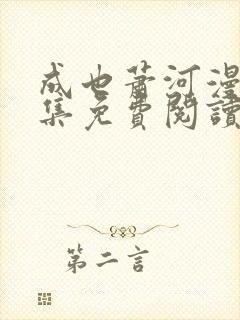 成也萧河漫
集免費閱讀
第二言